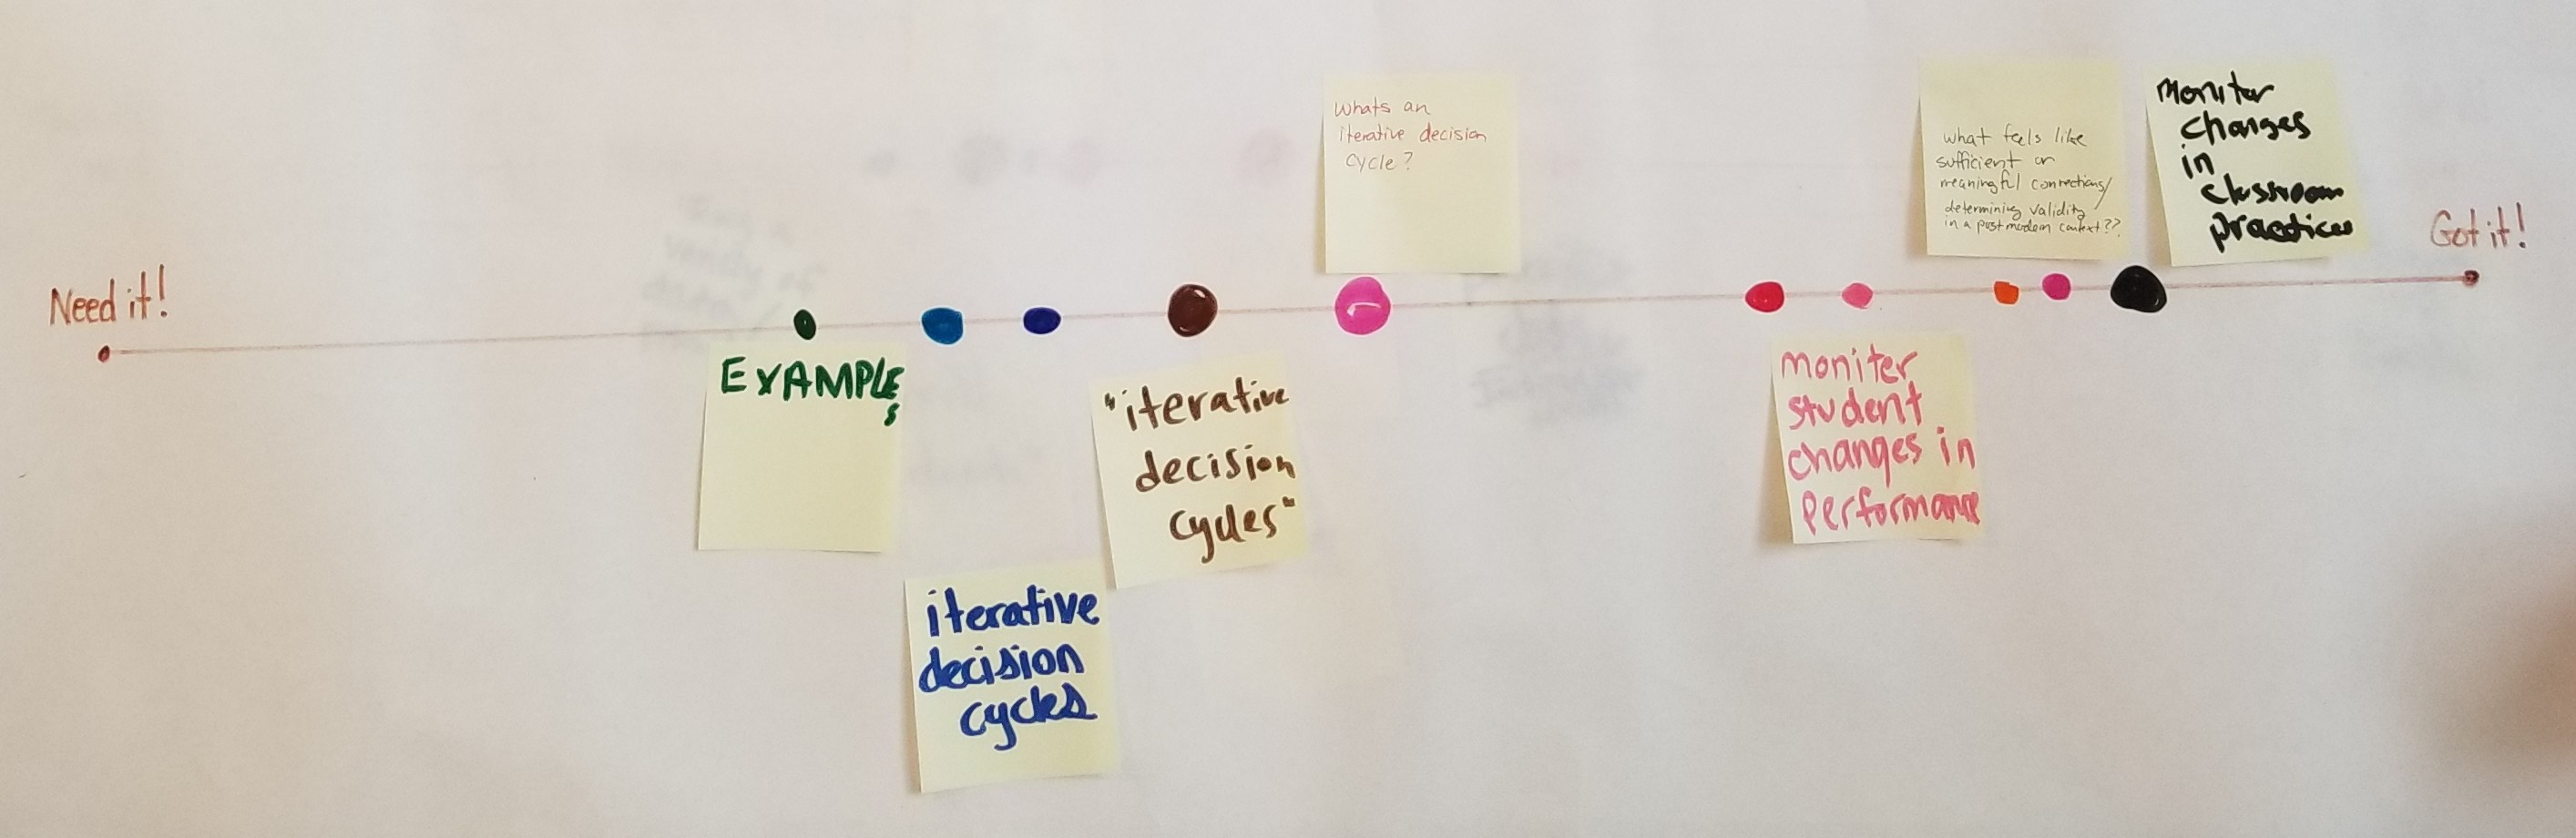 Need it!
EXAMPLE
s
iterative
decision
cycles
"iterative
decision
cycles"
Whats an
iterative decision
cycle?
moniter
student
changes in
performance
what feels like
sufficient or
meaningful connections/
determining validity
in a postmodern context??
Moniter
changes
in
classroom
practices
Got it!